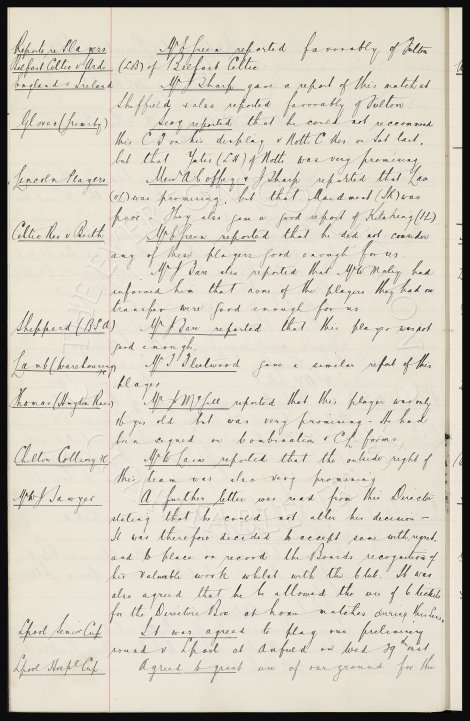 Reports re Players Mr E Green reported favorably of Fulton
Belfast Celtic v Ards (LB) of Belfast Celtic
England v Ireland Mr J Sharp gave a report of this match at
Sheffield, & also reported favorably of Fulton.
Glover (Grimsby) Secy reported that he could not recommend
this C.F. on his display v Notts C Res on Sat last,
but that Yates (LH) of Notts was very promising
Lincoln Players Messrs A Coffey & J Sharp reported that
(OL) was promising, but that Maidment (IR) was
poor. They also gave a good report of (IL)
Celtic Res v Perth Mr E Green reported that he did not consider
any of these players good enough for us.
Mr also reported that Mr W Maley had
informed him that none of the players they had on
transfer were good enough for us
Sheppard (BSA) Mr reported that this player was not
good enough.
Lamb (Warehousing) Mr T Fleetwood gave a similar report of this
player
Thomas (Hugton Recs) Mr J McGill reported that this player was only
16 yrs old but was very promising. He had
been signed on Combination & C.A. forms.
Chilton Colliery Mr W reported that the outside right of
this team was also very promising
Mr W J Sawyer A further letter was read from this Director
stating that he could not alter his decision -
It was therefore decided to accept same with regret,
and to place on record the Boards recognition of
his valuable work whilst with the Club. It was
also agreed that he be allowed the use of 6 tickets
for the Directors Box at home matches during this Season
Lpool Senior Cup It was agreed to play our preliminary
round v Lpool at Anfield on Wed 29 inst
Lpool Hospl Cup Agreed to grant use of our ground for the